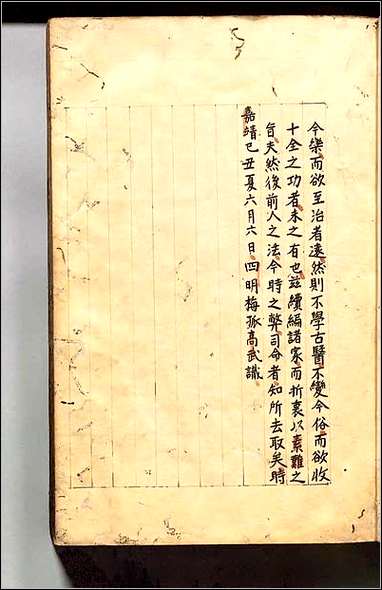 今樂而欲至治者遠然則不學古醫不變今俗而欲收
十全之功者未之有也茲續編諸家而折衷以素難之
旨夫然後前人之法今時之弊司命者知所去取矣時
嘉靖己丑夏六月六日四明梅孤高武識